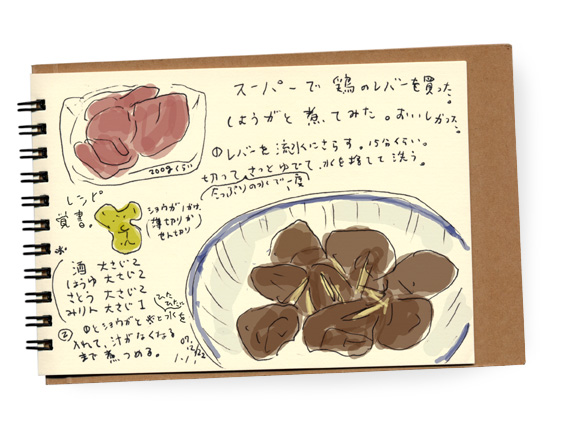 スーパーで 鶏のレバーを買った。
しょうがと 煮てみた。おいしかった。
200gくらい
①レバーを流水にさらす。15分くらい。
切って、さっとゆでて、水を捨てて洗う。
たっぷりの水で一度
レシピ
覚書。
ショウガ1かけ
薄切りか
せん切り
酒 大さじ2
しょうゆ 大さじ2
さとう 大さじ2
みりん 大さじ1
ひたひた
②
①とショウガと と水を
入れて、汁がなくなる
まで煮つめる。
07.